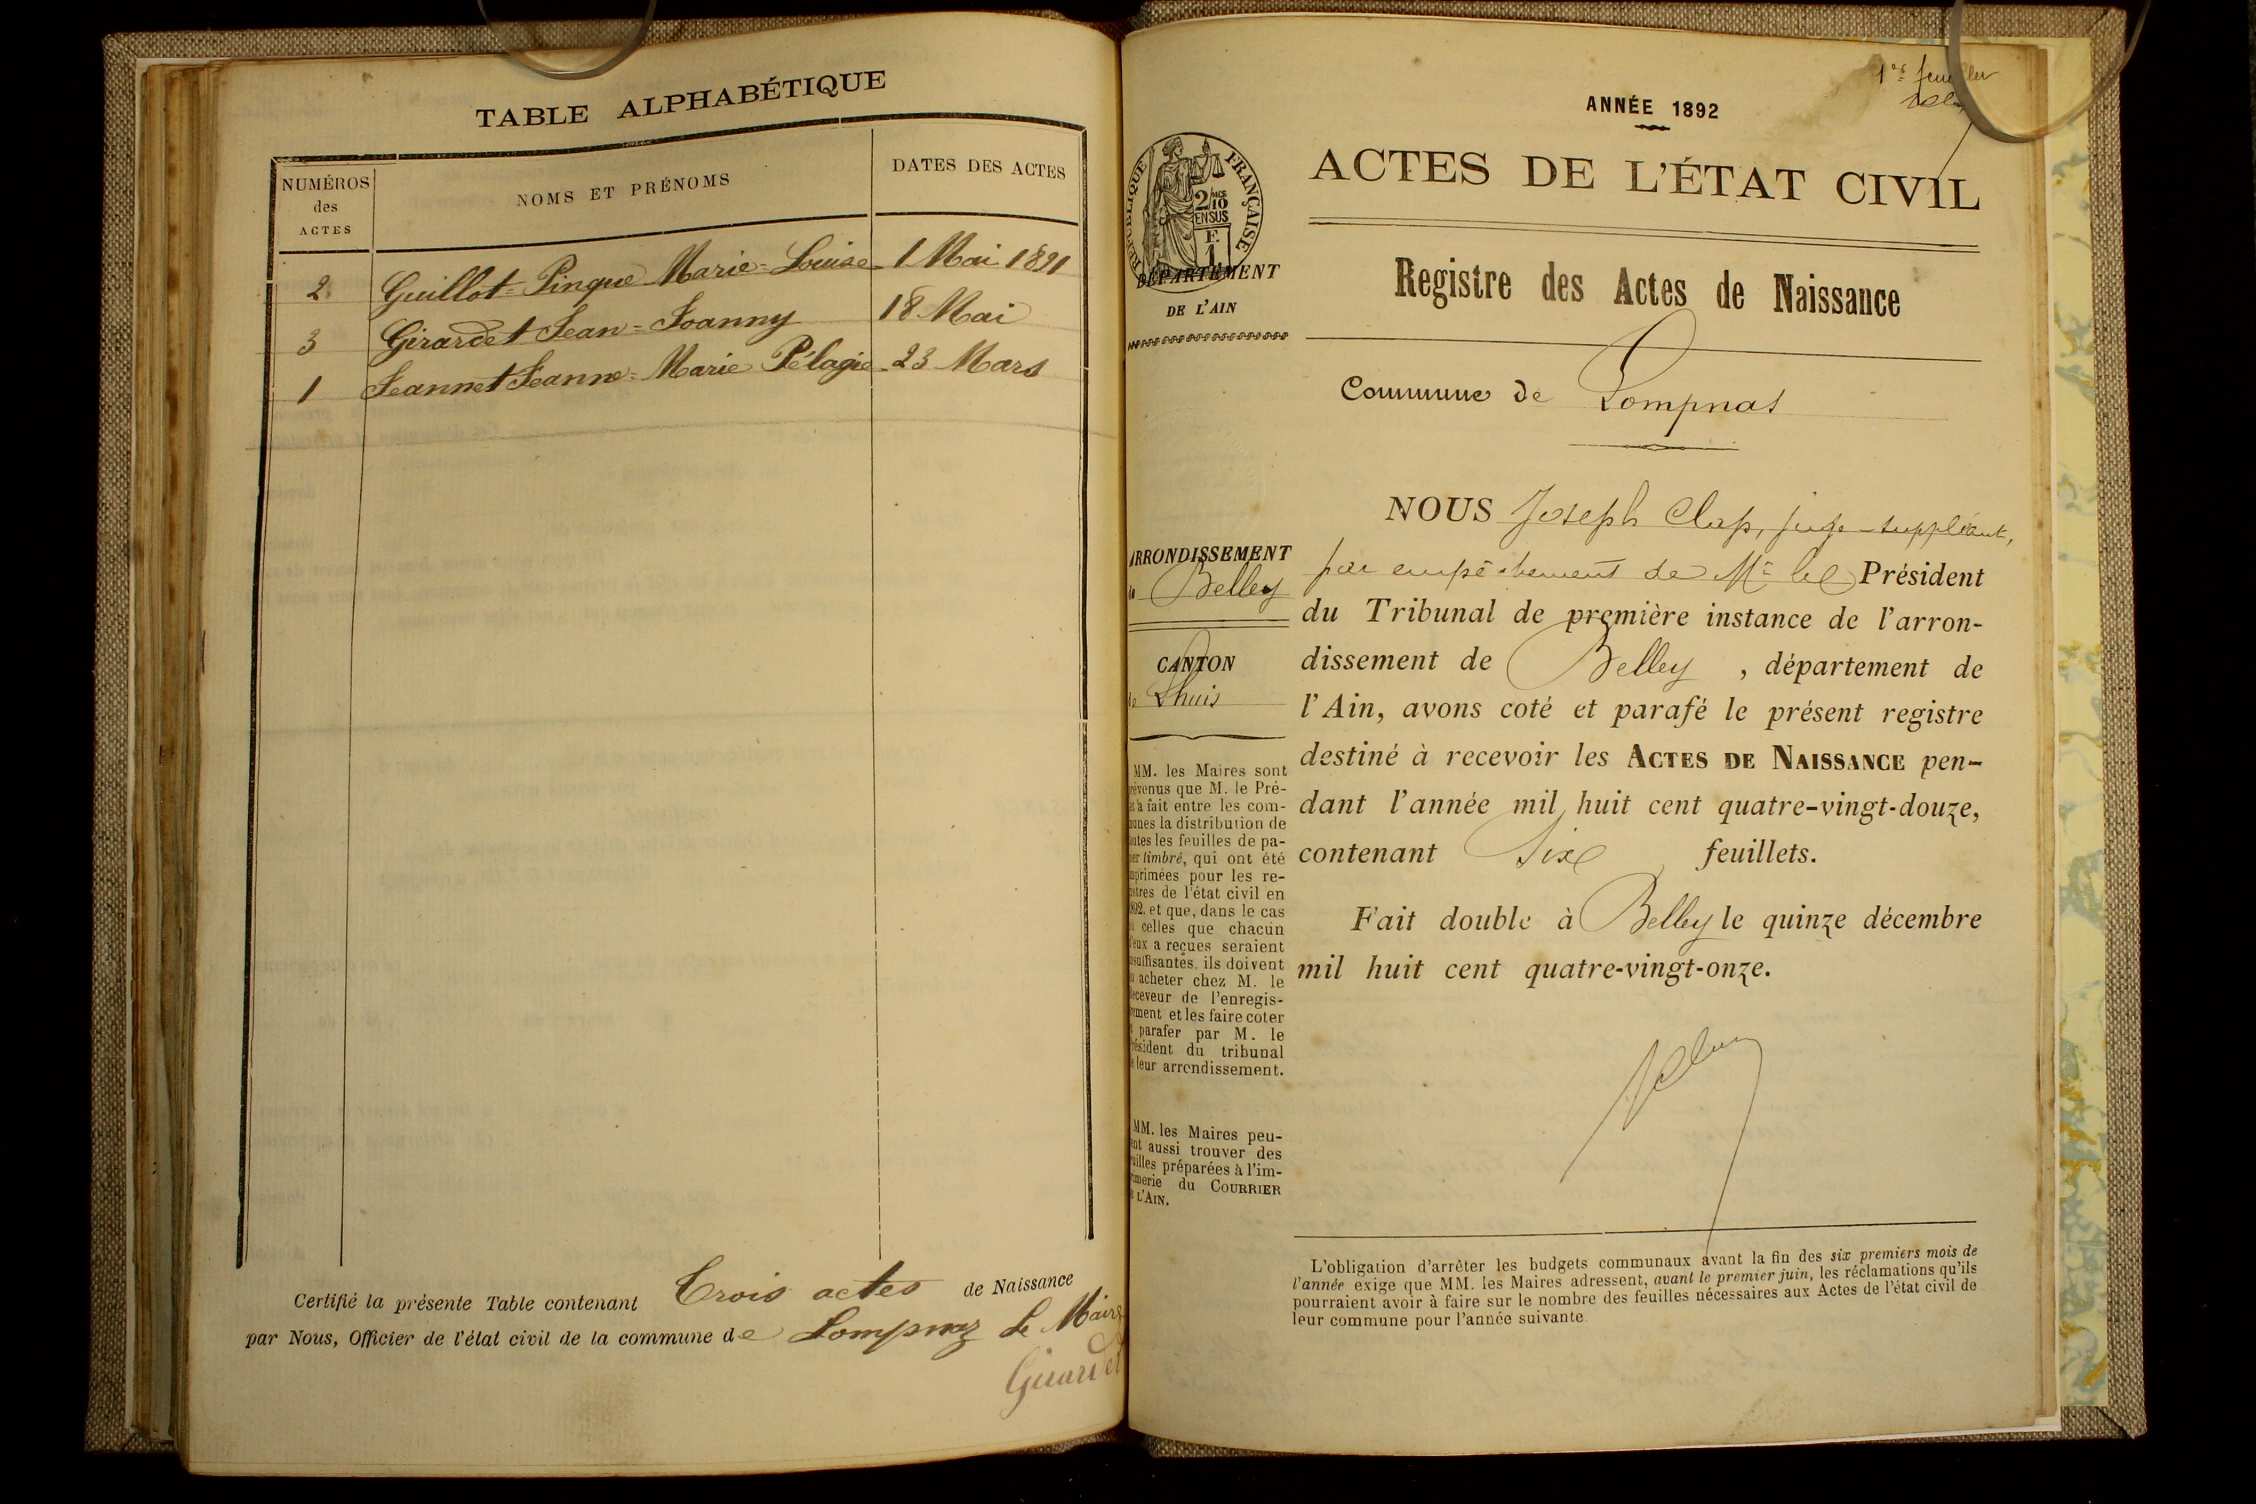 TABLE ALPHABÉTIQUE
NUMÉROS
des
ACTES
NOMS ET PRÉNOMS
DATES DES ACTES
2 Guillot-Pingue Marie-Louise 1 Mai 1891
3 Girardet Jean-Joanny 18 Mai
1 Jeannet Jeanne-Marie Pélagie 23 Mars
Certifié la présente Table contenant Trois actes de Naissance
par Nous, Officier de l'état civil de la commune de Lompnaz Le Maire
Girardet
1er feuillet
ANNÉE 1892
ACTES DE L'ÉTAT CIVIL
RÉPUBLIQUE FRANÇAISE
2/10
EN SUS
F.
1
DÉPARTEMENT
DE L'AIN
Registre des Actes de Naissance
Commune de Lompnas
ARRONDISSEMENT
de Belley
CANTON
de Lhuis
MM. les Maires sont
prévenus que M. le Pré-
fet a fait entre les com-
munes la distribution de
toutes les feuilles de pa-
pier timbré, qui ont été
imprimées pour les re-
gistres de l'état civil en
1892, et que, dans le cas
où celles que chacun
d'eux a reçues seraient
insuffisantes, ils doivent
en acheter chez M. le
Receveur de l'enregis-
trement et les faire coter
et parafer par M. le
Président du tribunal
de leur arrondissement.
MM. les Maires peu-
vent aussi trouver des
feuilles préparées à l'im-
primerie du COURRIER
DE L'AIN.
NOUS Joseph Clap, juge-suppléant,
par empêchement de Mr le Président
du Tribunal de première instance de l'arron-
dissement de Belley, département de
l'Ain, avons coté et parafé le présent registre
destiné à recevoir les ACTES DE NAISSANCE pen-
dant l'année mil huit cent quatre-vingt-douze,
contenant Six feuillets.
Fait double à Belley le quinze décembre
mil huit cent quatre-vingt-onze.
L'obligation d'arrêter les budgets communaux avant la fin des six premiers mois de
l'année exige que MM. les Maires adressent, avant le premier juin, les réclamations qu'ils
pourraient avoir à faire sur le nombre des feuilles nécessaires aux Actes de l'état civil de
leur commune pour l'année suivante.